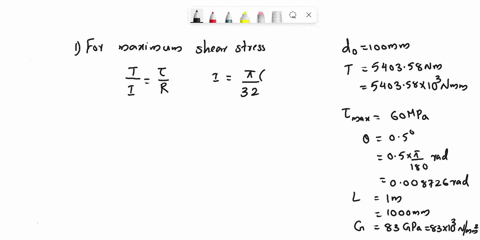 1) For maximum shear stress
T/I = τ/R   I = π(/32
d₀ = 100mm
T = 5403.58Nm
= 5403.58×10³Nmm
τmax = 60MPa
θ = 0.5°
= 0.5×π/180 rad
= 0.008726rad
L = 1m
= 1000mm
G = 83GPa = 83×10³N/mm²